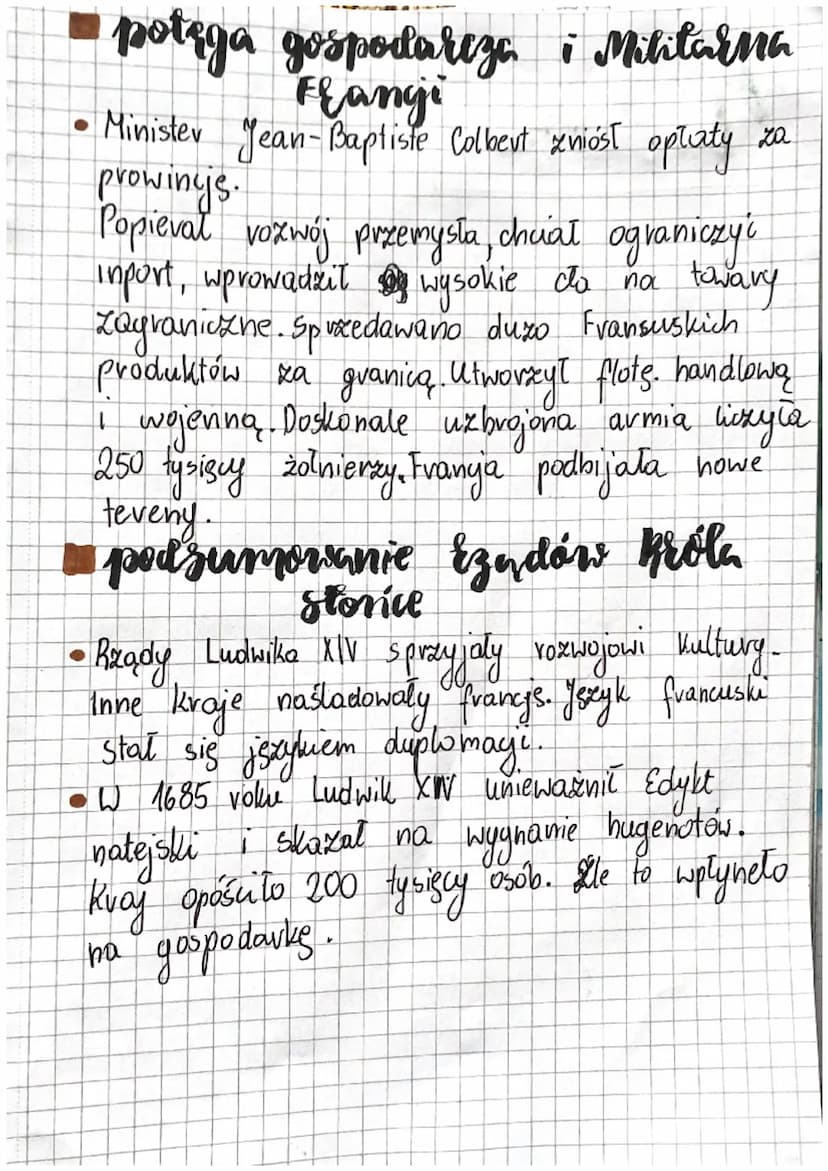 potęga gospodarcza i Militarna
Francji
• Minister Jean-Baptiste Colbert zniósł opłaty za
prowincję.
Popierał rozwój przemysła, chciał ograniczyć
inport, wprowadził wysokie cła na towary
zagraniczne. Sprzedawano dużo Fransuskich
produktów za granicą. Utworzył flotę. handlową
i wojenną. Doskonale uzbrojona armia liczyła
250 tysięcy żołnierzy. Francja podbijała nowe
tereny.
podsumowanie rządów Króla
słońce
• Rządy Ludwika XIV sprzyjały rozwojowi Kultury.
Inne kraje naśladowały francję. Język francuski
stał się językiem duplomacji.
• W 1685 roku Ludwik XIV unieważnił Edykt
natejski i skazał na wygnanie hugenotów.
Kraj opóściło 200 tysięcy osób. Źle to wpłyneło
na gospodarkę.